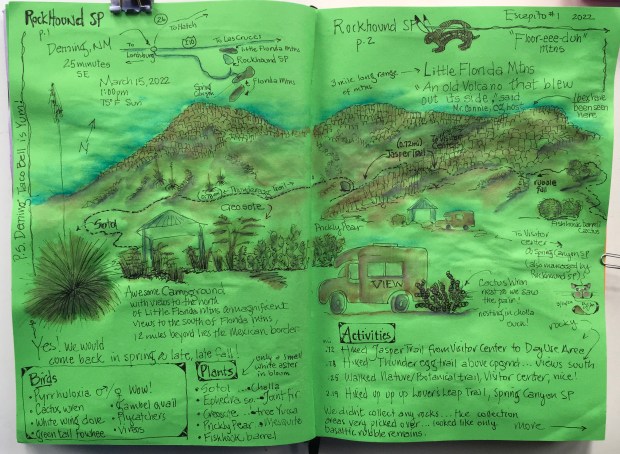 ROCKHOUND SP
p.1
Deming, NM
25 minutes
SE
March 15, 2022
1:00 pm
75° Sun
26
To Hatch
To Lordsburg
To Las Cruces
Little Florida Mtns
Rockhound SP
Spring Canyon
Florida Mtns
N
P.S. Deming Taco Bell is Yum!
Thunderegg trail
Creosote
Sotol
Awesome Campground
with views to the north
of Little Florida mtns, & magnificent
views to the south of Florida mtns,
12 miles beyond lies the Mexican border.
Yes! We would
come back in spring & late, late fall!
Birds
• Pyrrhuloxia ♂ ♀ Wow!
• Cactus wren
• White wing dove
• Green tail towhee
• Gambel quail
• Flycatchers
• Vireos
Plants
only a small
white aster
in bloom
• Sotol
• Ephedra sp. - Joint fir
• Creosote
• Prickly Pear
• Fishhook barrel
• Cholla
• tree Yucca
• Mesquite
ROCKHOUND SP
p. 2
Escapito #1 2022
"Floor-eee-duh"
mtns
3 mile long range
of mtns
Little Florida Mtns
"An old Volcano that blew
out its side," said
Ibex have
been seen
here
Jasper Trail
rubble
fall
Fishhook barrel
cactus
Prickly Pear
To Visitor
center →
& Spring Canyon SP
(also managed by
Rockhound SP)
VIEW
Cactus Wren
nest & we saw
the pair!
nesting in cholla
ouch!
rocky
Activities
Hiked Jasper Trail from Visitor Center to Day Use Area
Hiked Thunder egg trail above cpgrnd... views south
Walked Nature/Botanical trail, Visitor Center, nice!
Hiked up up up Lover's Leap Trail, Spring Canyon SP
We didnt collect any rocks... the collection
areas very picked over... looked like only
basaltic rubble remains.
more →